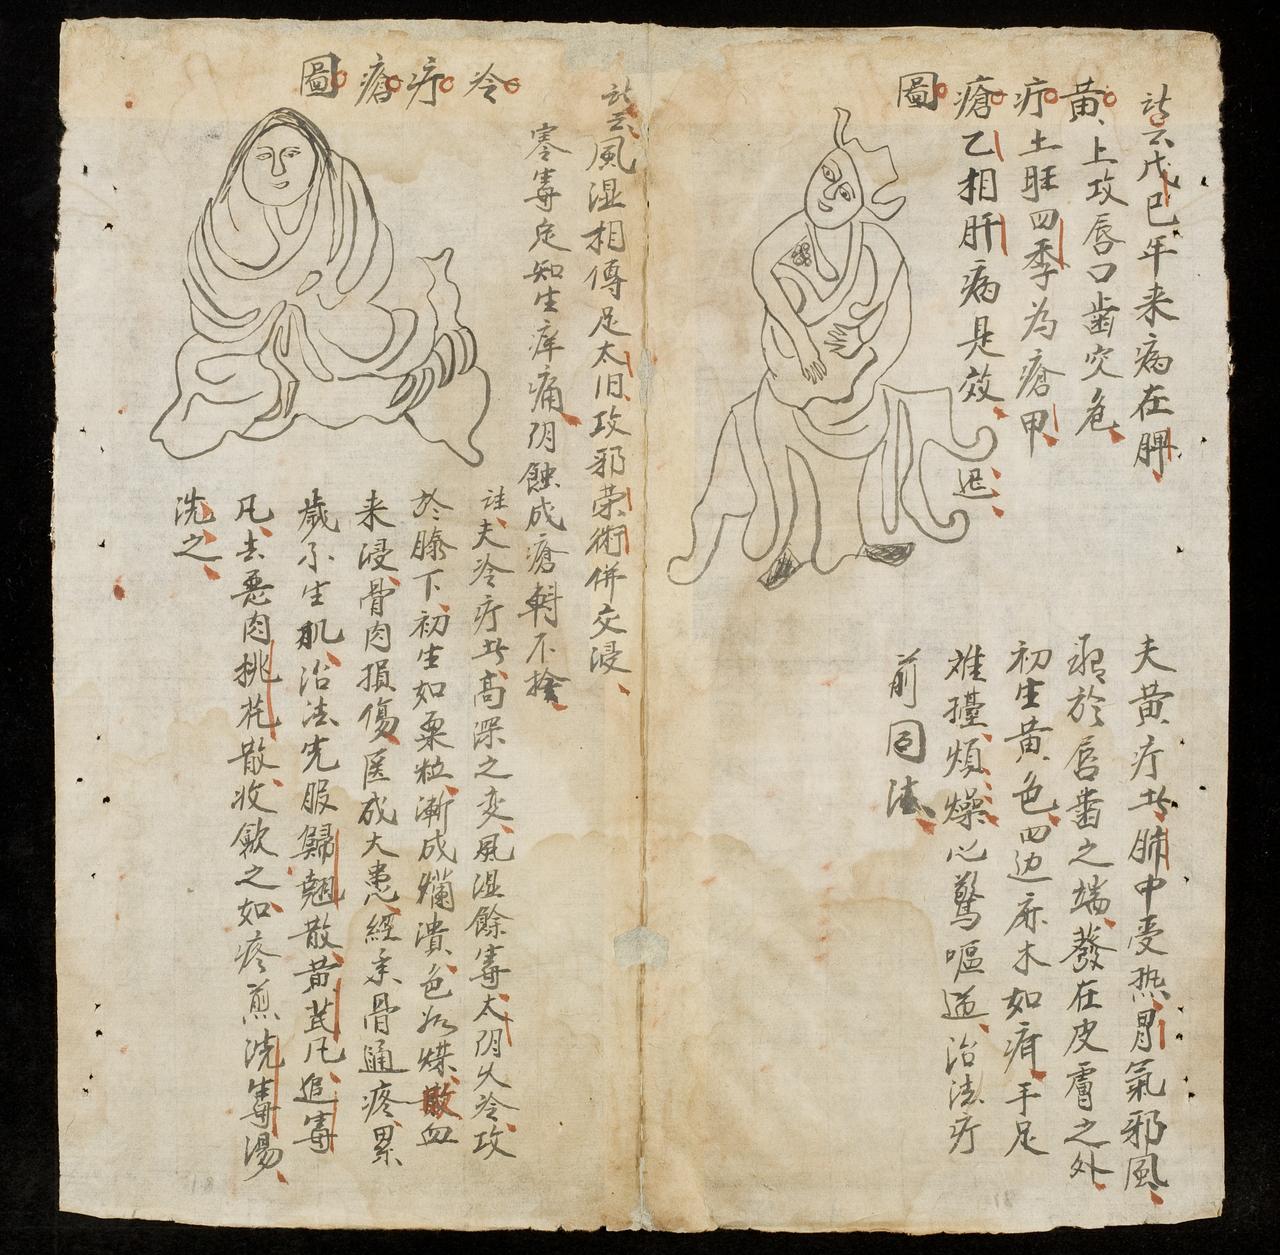 黃疔瘡圖
云戊巳年来病在脾
上攻唇口齒突危
土旺四季為瘡甲
乙相肝病是效
迟
夫黄疔此肺中受热胃氣邪風
於唇齒之端發在皮膚之外
初生黄色四边麻木如疳手足
难擡煩燥心驚嘔逆治法疔
前同法
冷疔瘡圖
云風湿相傳足太旧攻邪荣術併交浸
寒毒定知生痒痛阴蝕成瘡不捨
註夫冷疔此高深之交風湿餘毒太阴火冷攻
於膝下初生如粟粒漸成爛潰色如煤散血
来浸骨肉損傷医成大患經骨通疼累
歲不生肌治法先服歸翘散黄芪凡追毒
凡去悪肉挑花散收歛之如疼煎洗毒湯
洗之